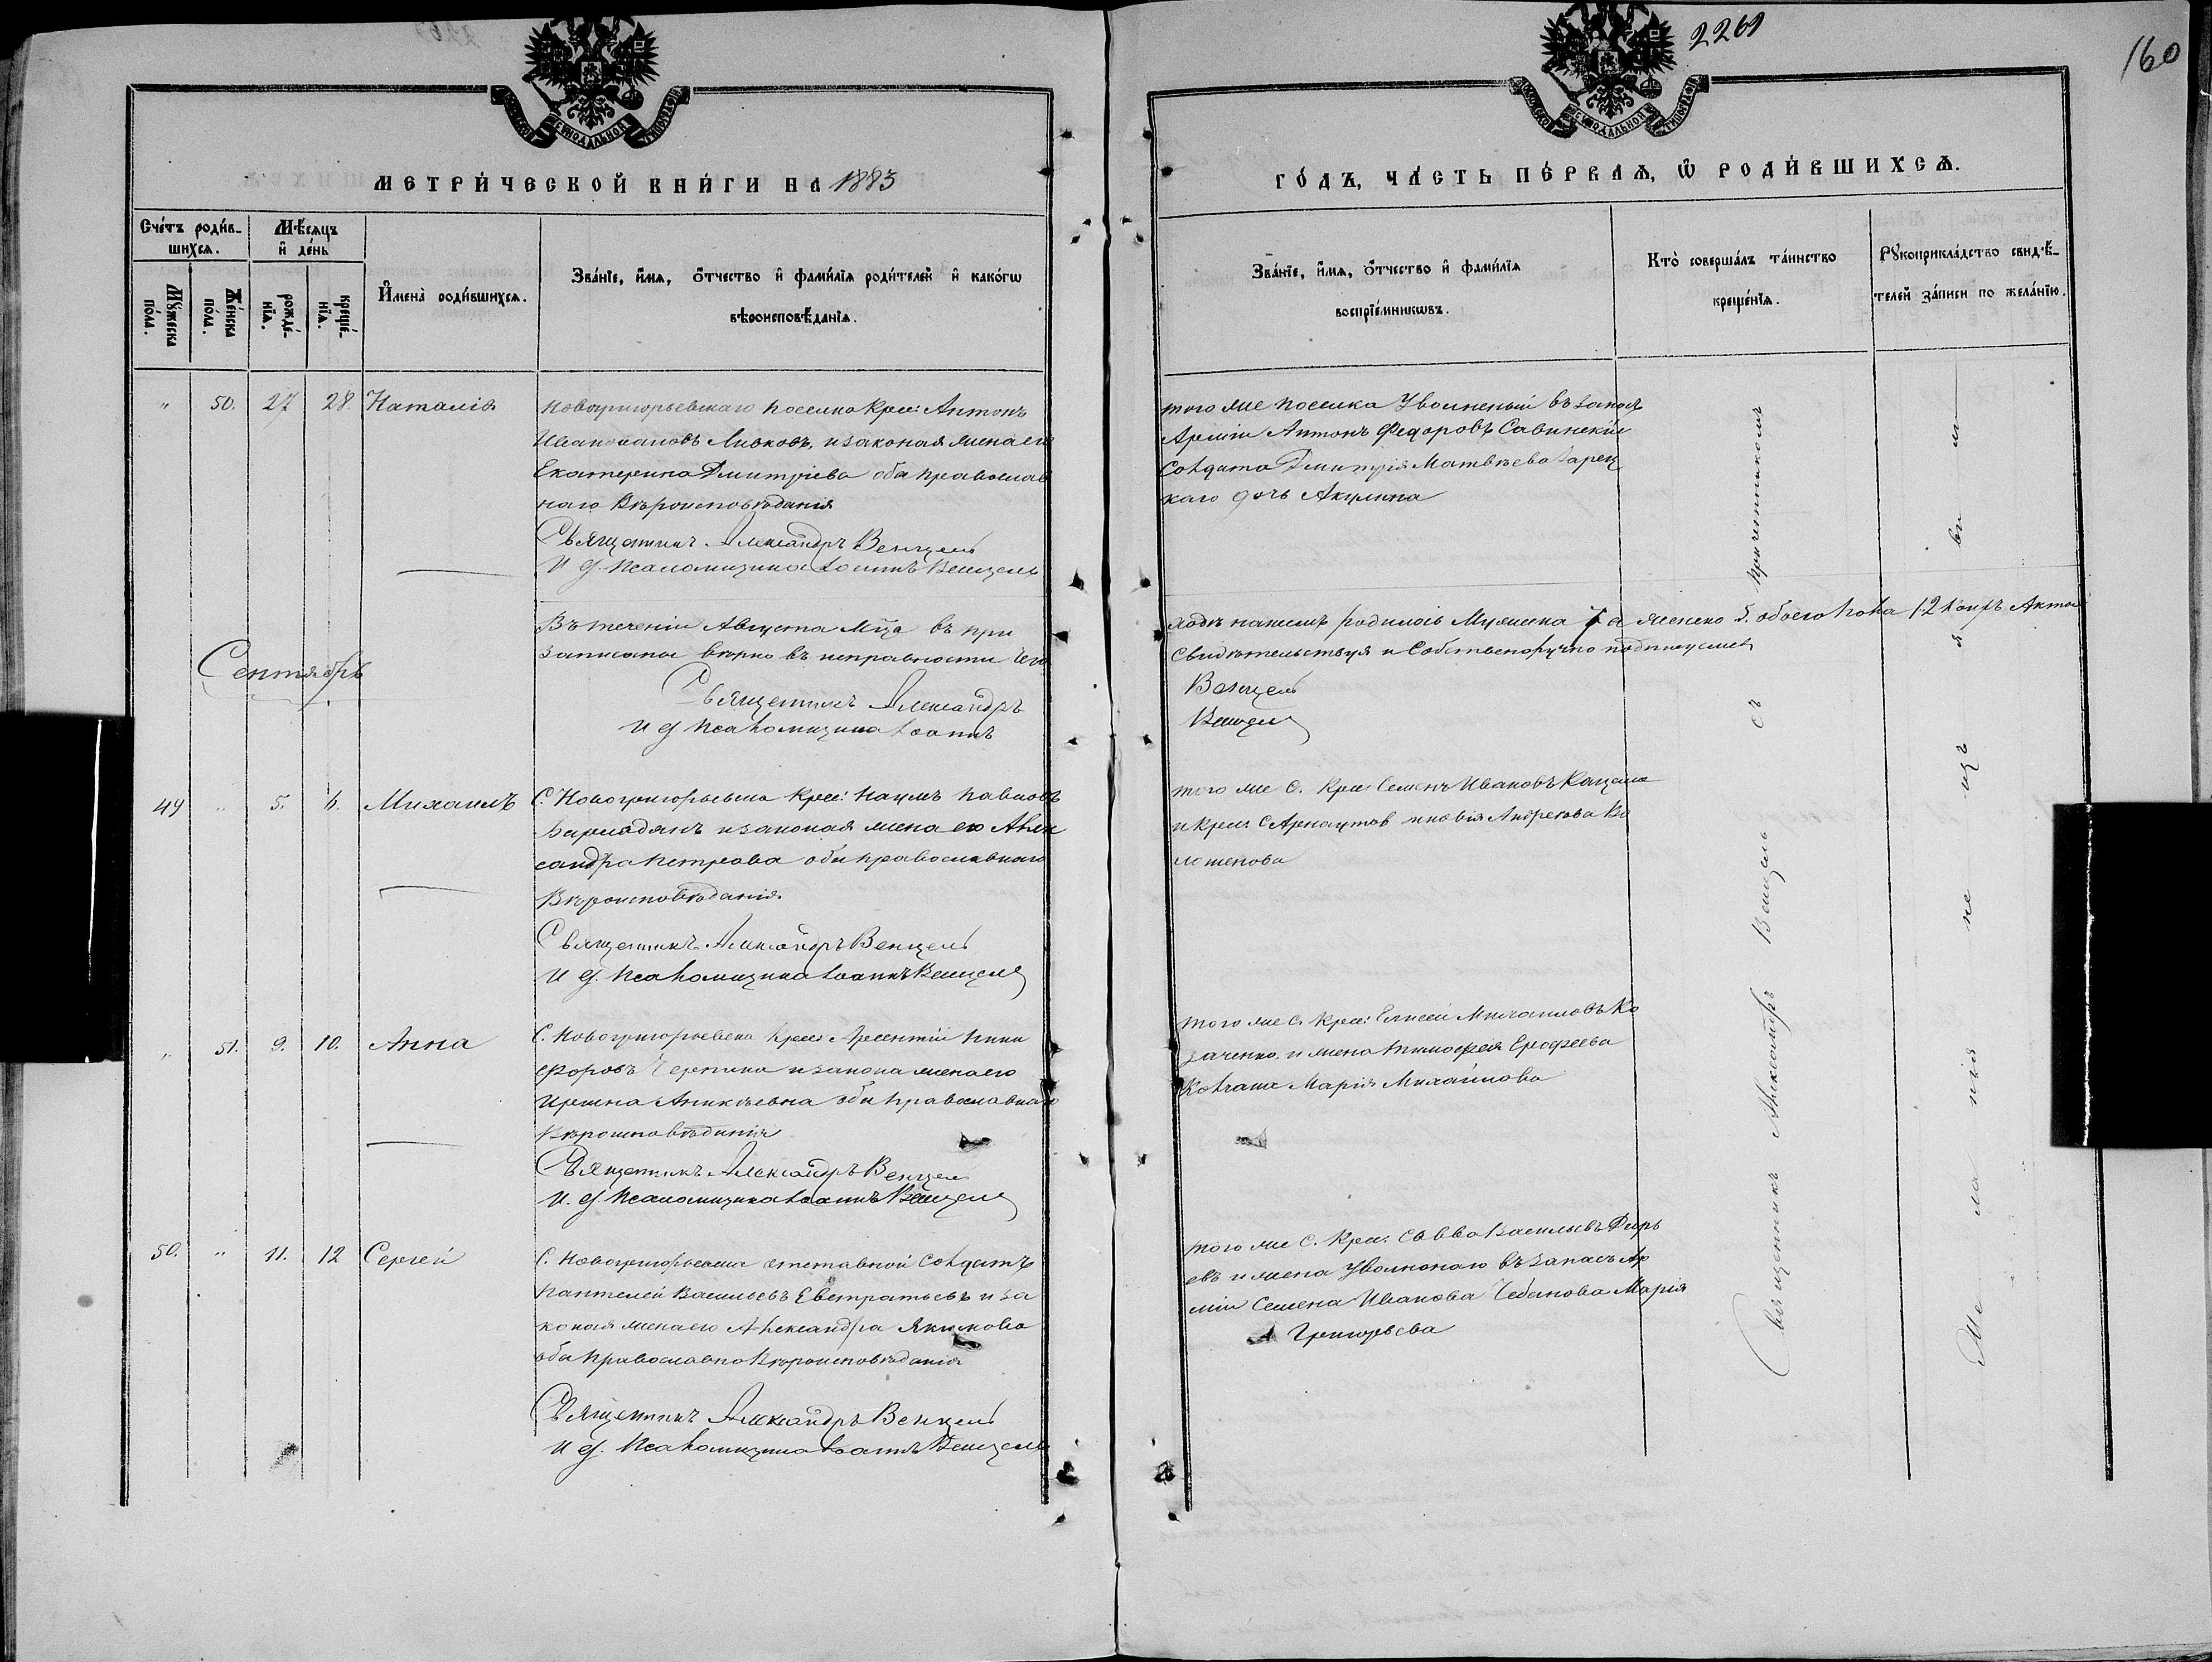 2261
160
МЕТРИ́ЧЕСКОЙ КНИ́ГИ НА 1883
ГО́ДЪ, ЧА́СТЬ ПЕ́РВАѦ, Ѡ҆ РОДИ́ВШИХСѦ.
Сче́тъ роди́в-
шихсѧ.
Мѣ́сѧцъ
и҆ де́нь
Мꙋ́жеска по́ла.
Же́нска по́ла.
рожде́-
нїѧ.
креще́-
нїѧ.
И҆мена̀ роди́вшихсѧ.
Зва́нїе, и҆́мѧ, ѻ҆́тчество и҆ фами́лїѧ роди́телей и҆ како́гѡ
вѣроисповѣ́данїѧ.
Зва́нїе, и҆́мѧ, ѻ҆́тчество и҆ фами́лїѧ
воспрїе́мникѡвъ.
Кто̀ соверша́лъ та́инство
креще́нїѧ.
Рꙋкоприкла́дство свидѣ́-
телей за́писи по жела́нїю.
" 50. 27 28 Наталія
Новогригорьевскаго поселка крес: Антонъ
Ливковъ, и законая жена его
Екатерина Дмитріева оба православ
наго Вѣроисповѣданія
Священникъ Александръ Венцель
И д. псаломщика Іоаннъ Венцель
того же поселка Уволненый въ запас
Арміи Антонъ Федоровъ Савинскій
Солдата Дмитрія Матвѣева
каго дочь Акулина
Сентябрь
Въ теченіи Августа М̃ца въ при
ходѣ нашемъ родилось Мужеска 7 а женско 5. обоего пола 12
записаны вѣрно въ исправности чего
Свидѣтельствуя и Собственоручно подписуемся
Священникъ Александръ
Венцель
И д псаломщика Іоаннъ
Венцель
49 " 5. 6. Михаилъ
С. Новогригорьевка крес: Наумъ Павловъ
и законая жена его Алек
сандра Петрова оба православнаго
Вѣроисповѣданія
Священникъ Александръ Венцель
И д. псаломщика Іоаннъ Венцель
того же С. крес: Семенъ Ивановъ
и крес: С Андреева Ко
" 51. 9. 10. Анна
С. Новогригорьевка крес: Арсентій Ники
форовъ и закона жена его
Ирина оба православнаго
Вѣроисповѣданія
Священникъ Александръ Венцель
И. д. псаломщика Іоаннъ Венцель
того же С. крес: Елисей Михаиловъ Ко
заченко. и жена Тимофея Ерофеева
Марія Михайлова
50. " 11. 12 Сергей
С. Новогригорьевка отставной Солдатъ
Пантелей Васильевъ Евстратьевъ и за
коная жена его Александра Якимова
оба православно Вѣроисповѣданія
Священникъ Александръ Венцель
И д. псаломщика Іоаннъ Венцель
того же С. крес: Савва Васильевъ
евъ и жена Уволнонаго въ запасъ Ар
міи Семена Иванова Чебанова Марія
Григорьева
Священникъ Александръ Венцель съ причетникомъ